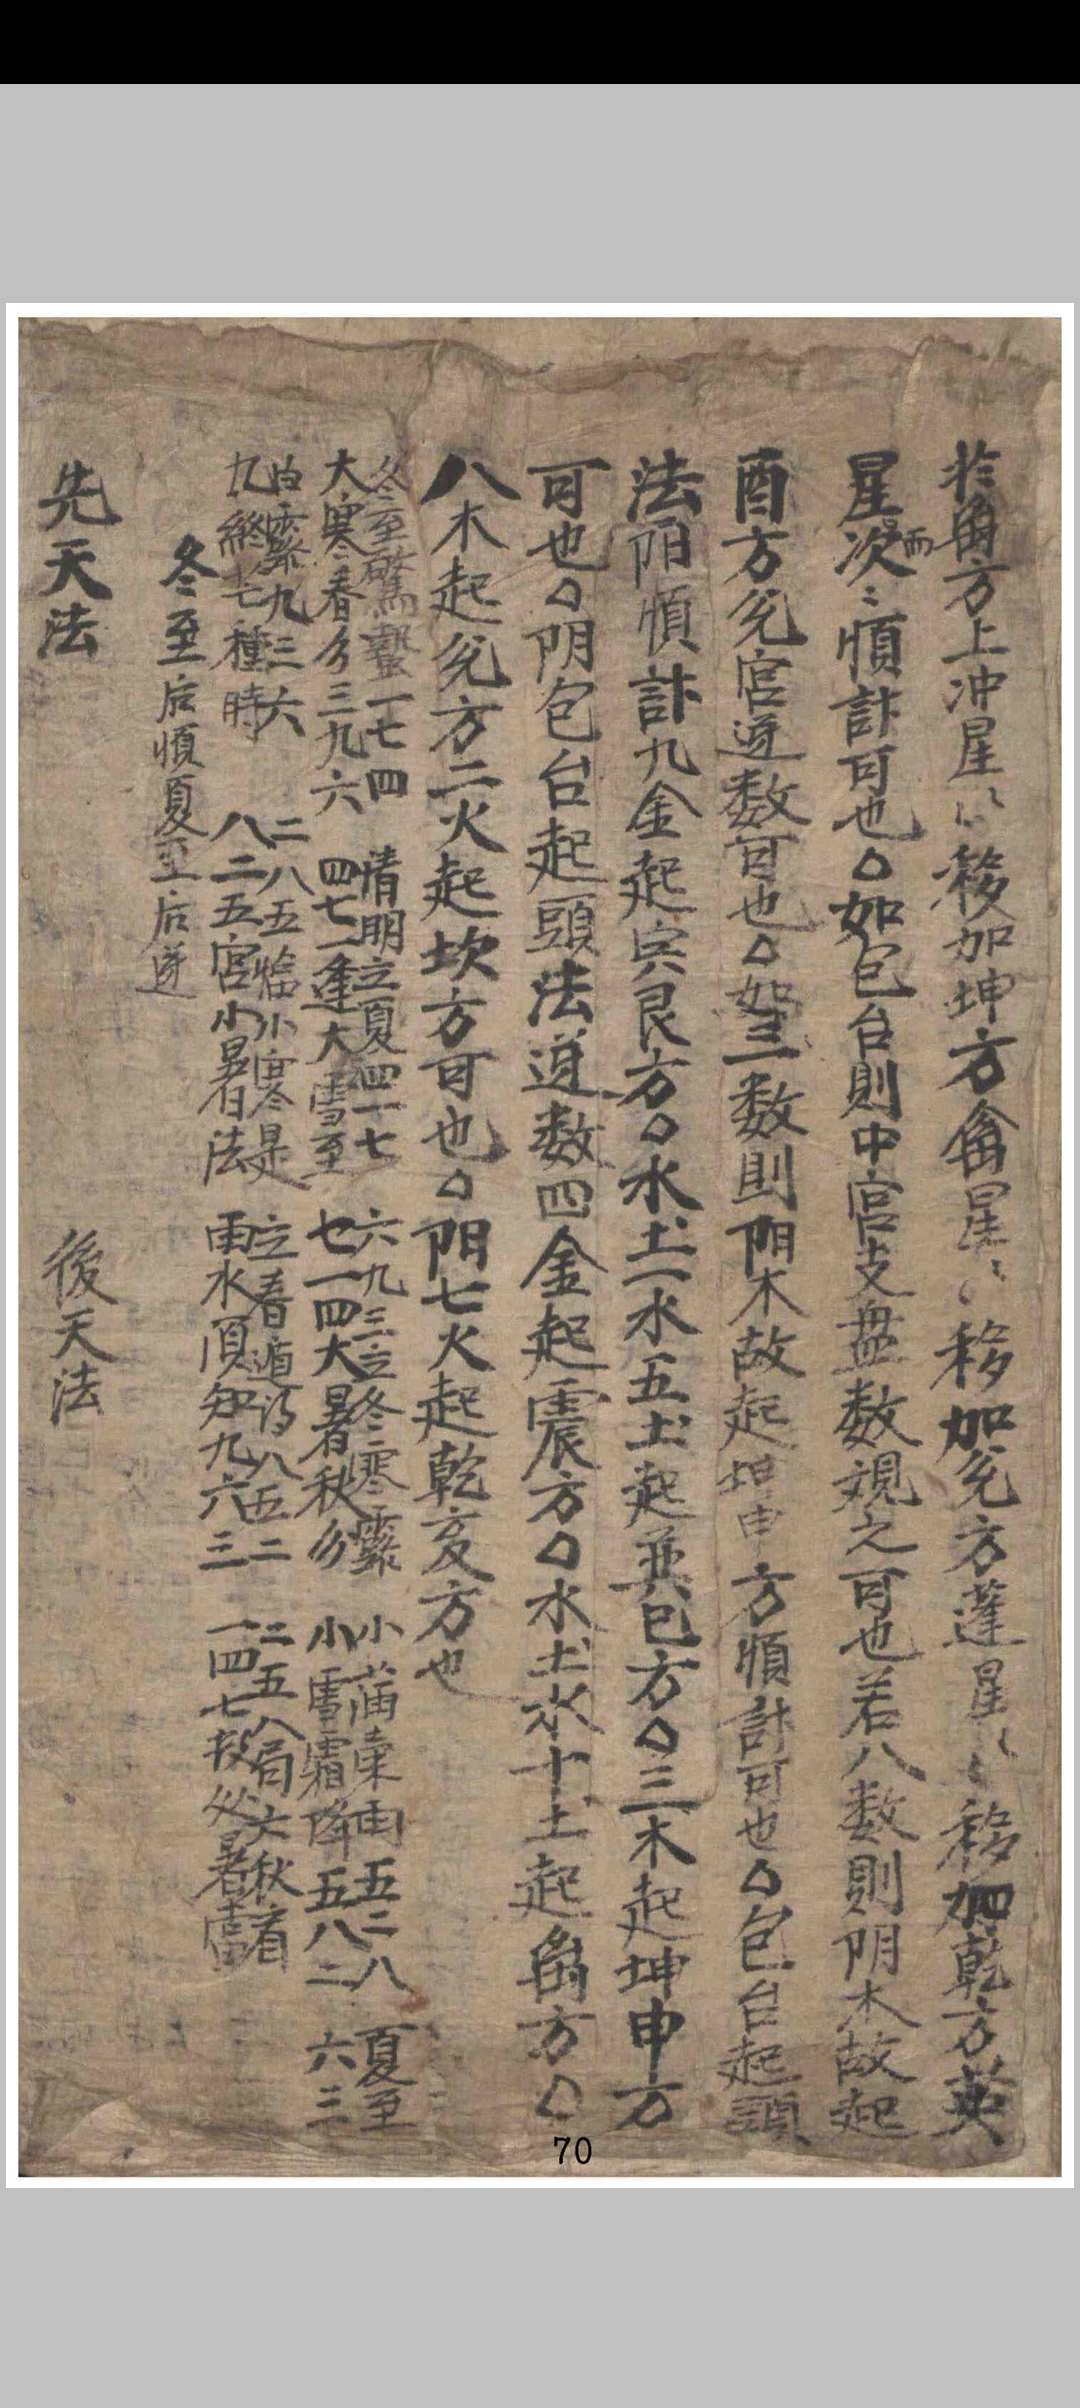 於角方上冲星〻移加坤方禽星〻移加兌方蓬星〻移加乾方英
星次而〻順計可也○如包台則中宮支盤数規之可也若八数則阴木故起
酉方兌宮逆数可也○如三数則阳木故起坤申方順計可也○包台起頭
法阳順計九金起艮方○水土一水五土起巽巳方○三木起坤申方
可也○阴包台起頭法逆数四金起震方○水土水十土起角方○
八木起兌方二火起坎方可也○阳七火起乾亥方也
冬至驚蟄一七四 清明立夏四一七 六九三立冬寒露 小滿 雨五二八 夏至
大寒春分三九六 四七一逢大雪至 七一四大暑秋分 小雪霜降五八二 六三
白露九三六 二八五臨小寒是 立春遁 八五二 二五八局立秋
九終七種時 八二五宮小暑法 雨水須知九六三 一四七 處暑
冬至后順夏至后逆
先天法 後天法
70